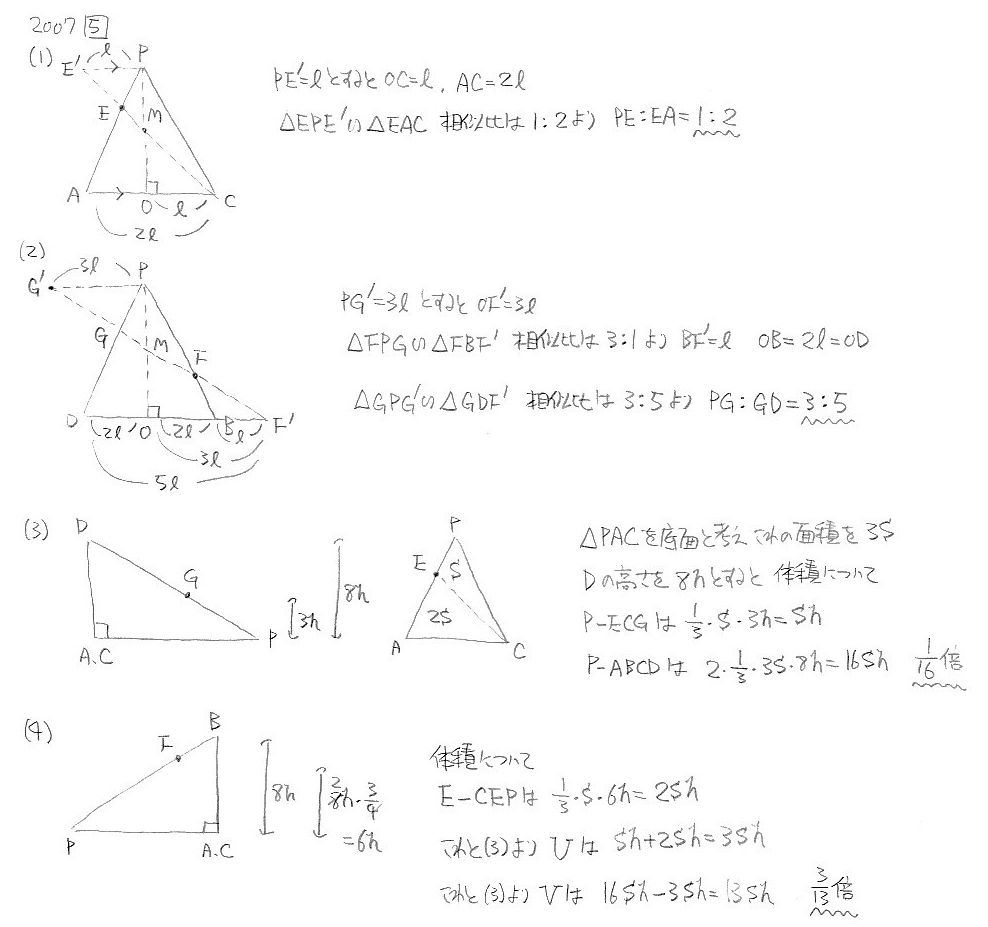 2007 5
(1)
E' l P
E M
A O l C
2l
PE'=lとすると OC=l, AC=2l
△EPE'∽△EAC 相似比は1:2より PE:EA=1:2
(2)
3l P
G'
G M F
D 2l O 2l B l F'
3l
5l
PG'=3lとすると OF'=3l
△FPG∽△FBF' 相似比は3:1より BF'=l OB=2l=OD
△GPG'∽△GDF' 相似比は3:5より PG:GD=3:5
(3)
D G P A.C
3h 8h
P E S 2S A C
△PACを底面と考えこれの面積を3S
Dの高さを8hとすると 体積について
P-ECGは 1/3・S・3h=Sh
P-ABCDは 2・1/3・3S・8h=16Sh 1/16倍
(4)
F B P A.C
8h 8h・3/4 2
=6h
体積について
E-CEPは 1/3・S・6h=2Sh
これと(3)より Uは Sh+2Sh=3Sh
これと(3)より Vは 16Sh-3Sh=13Sh 3/13倍